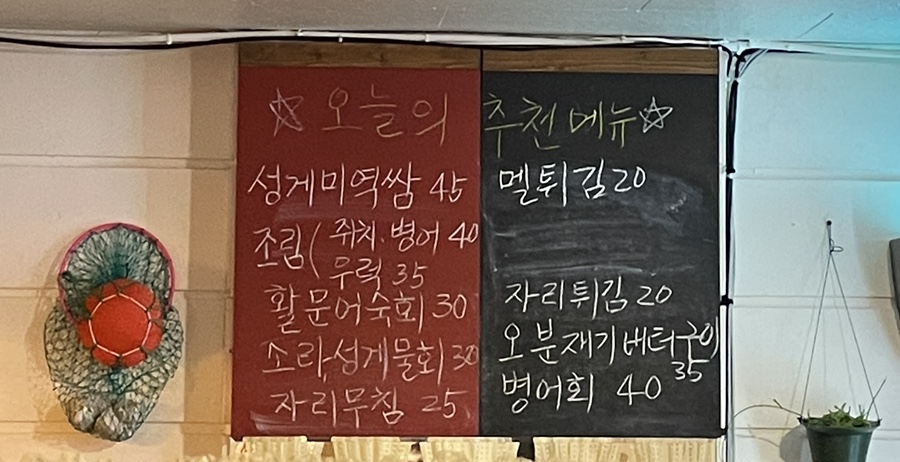 ☆ 오늘의 추천메뉴 ☆
성게미역쌈 45
조림( 쥐치.병어 40
우럭 35
활문어숙회 30
소라,성게물회 30
자리무침 25
멜튀김 20
자리튀김 20
오분재기버터구이 35
병어회 40